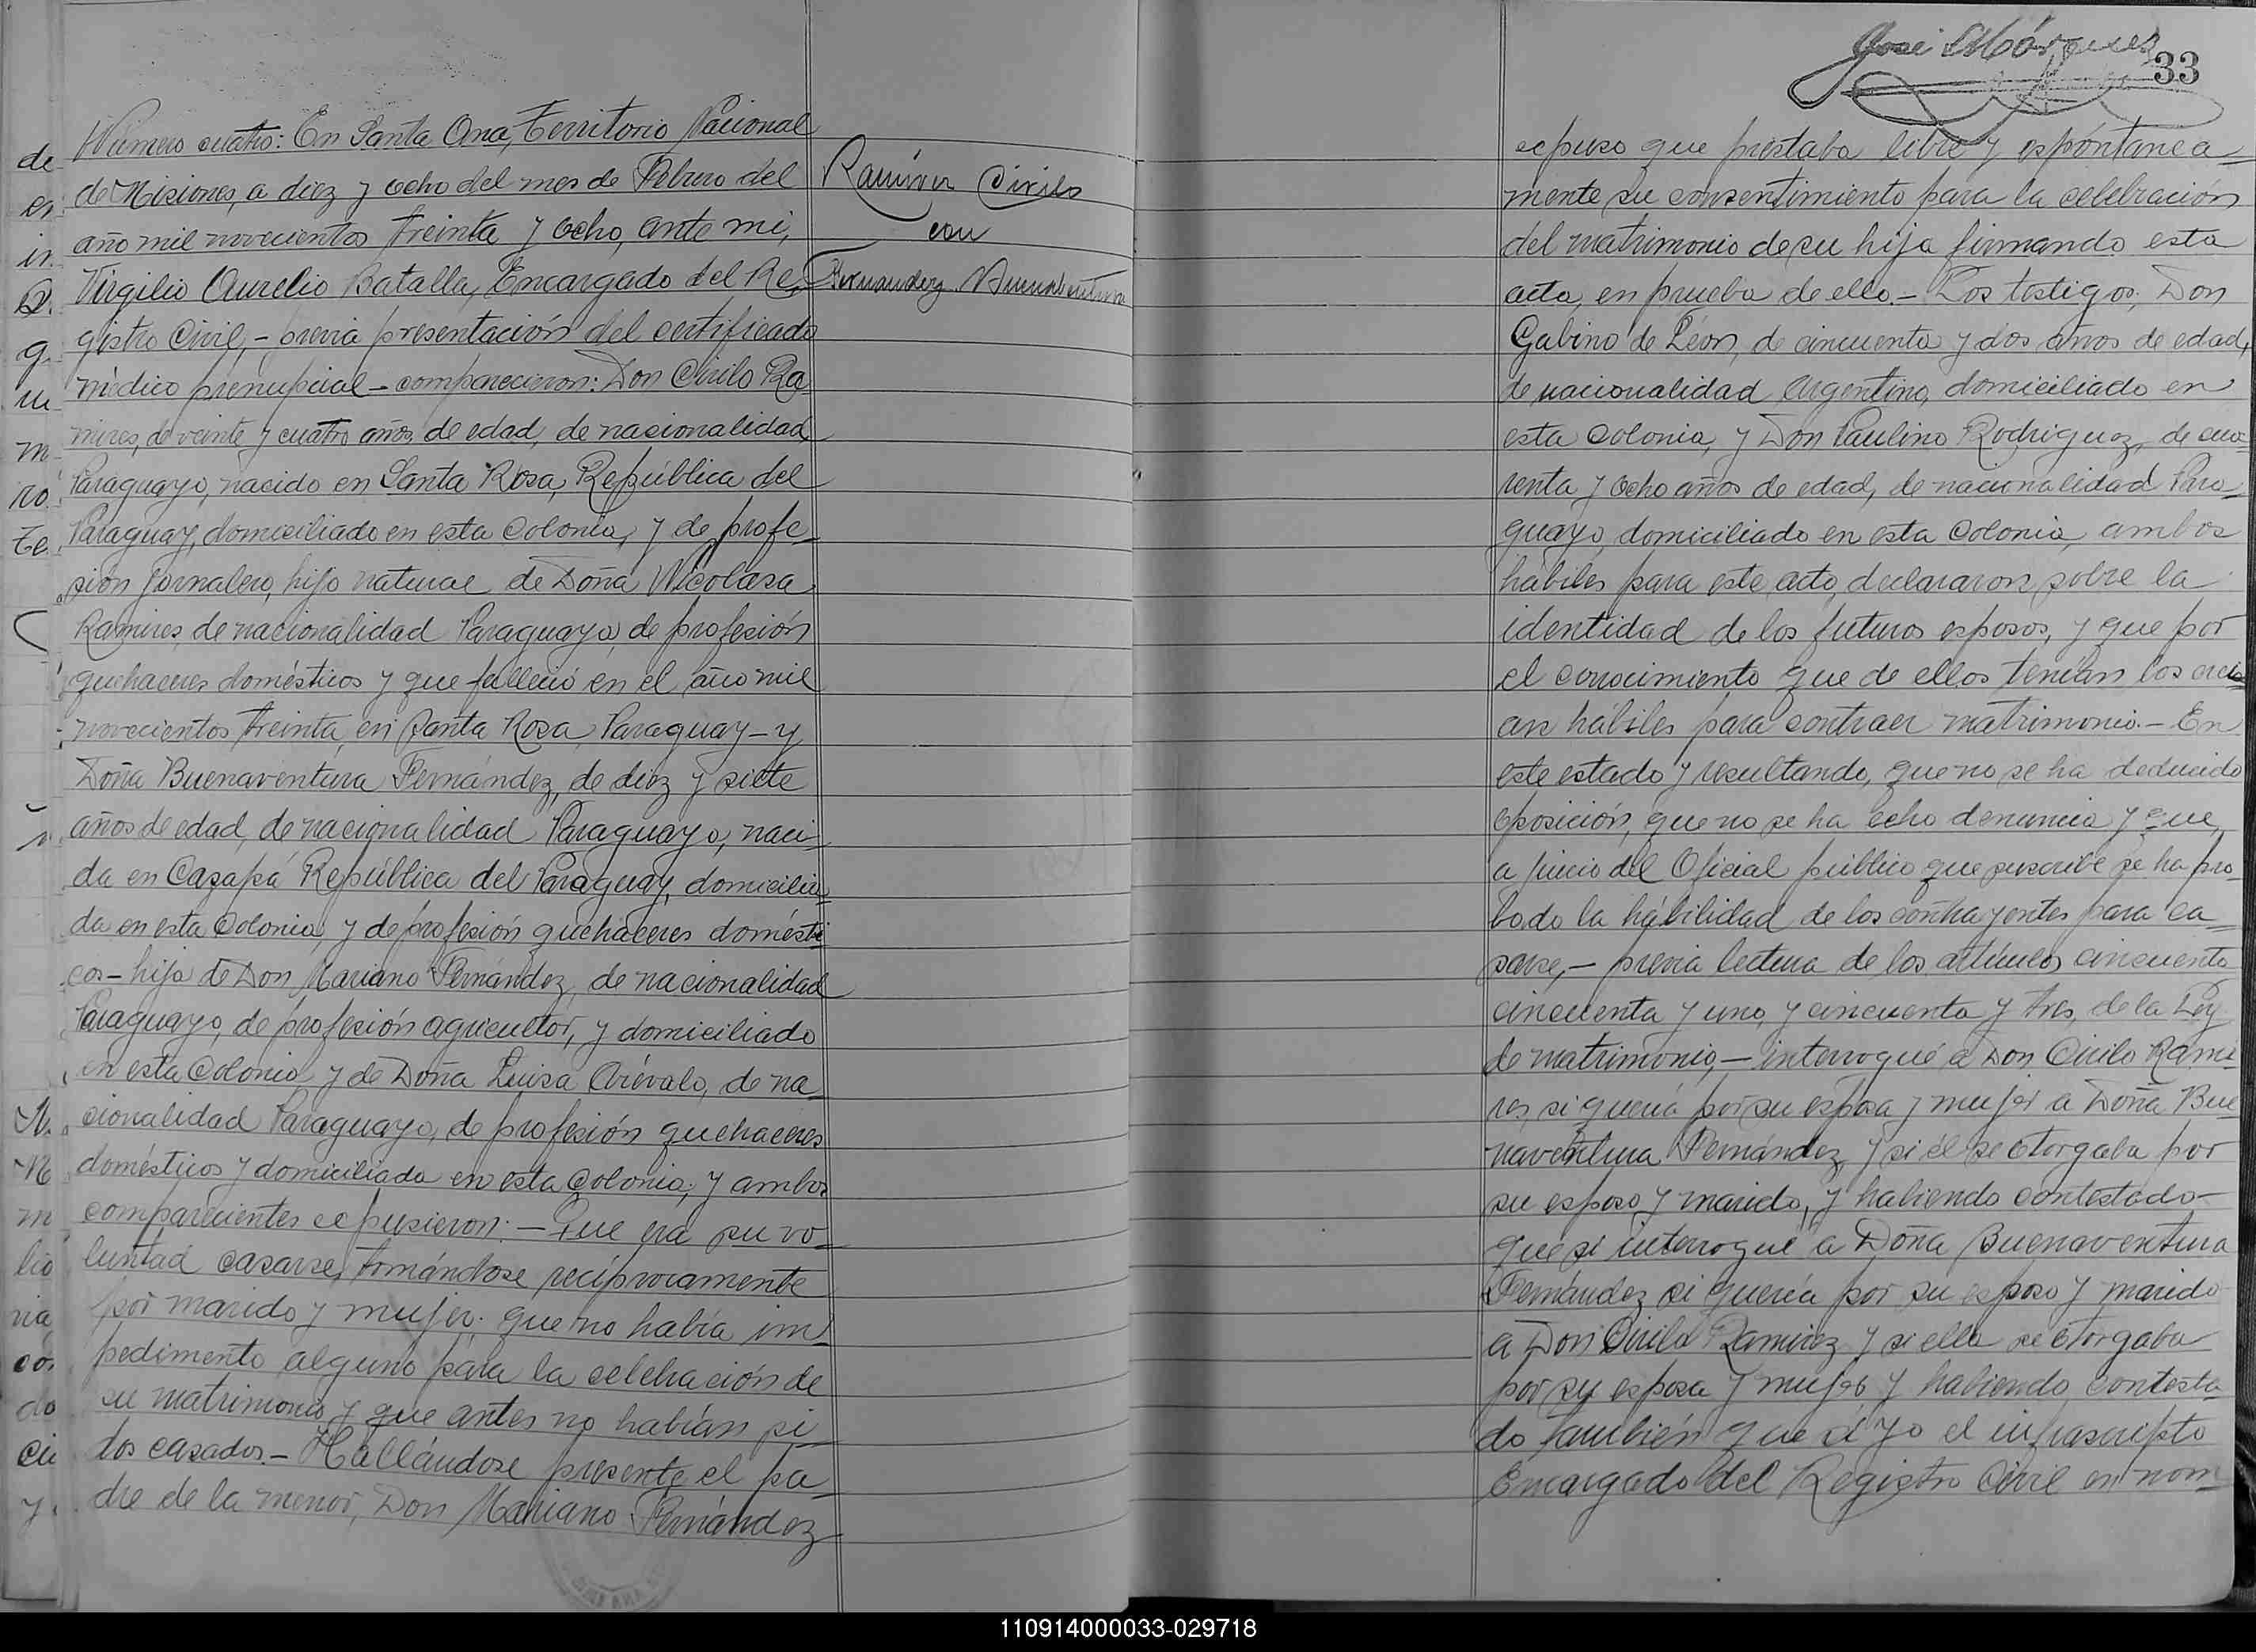 Número cuatro: En Santa Ana, Territorio Nacional
de Misiones, a diez y ocho del mes de Febrero del
año mil novecientos treinta y ocho, ante mi,
Virgilio Aurelio Batalla, Encargado del Re-
gistro Civil, - previa presentación del certificado
médico prenupcial - comparecieron: Don Cirilo Ra-
mires, de veinte y cuatro años de edad, de nacionalidad
Paraguayo, nacido en Santa Rosa, República del
Paraguay, domiciliado en esta Colonia, y de profe-
sión jornalero, hijo natural de Doña Nicolasa
Ramires, de nacionalidad Paraguaya, de profesión
quehaceres domésticos y que falleció en el año mil
novecientos treinta, en Santa Rosa, Paraguay - y
Doña Buenaventura Fernández, de diez y siete
años de edad, de nacionalidad Paraguaya, naci-
da en Cazapá República del Paraguay, domicilia-
da en esta Colonia, y de profesión quehaceres domésti-
cos - hija de Don Mariano Fernández, de nacionalidad
Paraguayo, de profesión agricultor, y domiciliado
en esta Colonia y de Doña Luisa Arévalo, de na-
cionalidad Paraguaya, de profesión quehaceres
domésticos y domiciliada en esta Colonia; y ambos
comparecientes ecpusieron: - Que era su vo-
luntad casarse, tomándose recíprocamente
por marido y mujer; que no había im-
pedimento alguno para la celebración de
su matrimonio y que antes no habían si-
dos casados. - Hallándose presente el pa-
dre de la menor, Don Mariano Fernández
Ramírez Cirilo
con
Fernandez Buenaventura
José Márquez
33
ecpuso que prestaba libre y espóntanea-
mente su consentimiento para la celebración
del matrimonio de su hija firmando esta
acta, en prueba de ello. - Los testigos, Don
Gabino de León, de cincuenta y dos años de edad,
de nacionalidad Argentino, domiciliado en
esta Colonia, y Don Paulino Rodriguez, de cua-
renta y ocho años de edad, de nacionalidad Para-
guayo, domiciliado en esta Colonia, ambos
hábiles para este acto, declararon, sobre la
identidad de los futuros esposos, y que por
el conocimiento que de ellos tenían los creí-
an hábiles para contraer matrimonio. - En
este estado y resultando, que no se ha deducido
oposición, que no se ha echo denuncia y que,
a juicio del Oficial público que suscribe se ha pro-
bado la hábilidad de los contrayentes para ca-
sarse, - previa lectura de los artículos cincuenta
cincuenta y uno, y cincuenta y tres, de la Ley
de matrimonio, - interrogué a Don Cirilo Rami-
res, si quería por su esposa y mujer a Doña Bue
naventura Fernández y si él se otorgaba por
su esposo y marido, y habiendo contestado -
que si interrogué a Doña Buenaventura
Fernández si quería por su esposo y marido
a Don Cirilo Ramírez y si ella se otorgaba
por su esposa y mujer y habiendo contesta
do también que sí yo el infrascripto
Encargado del Registro Civil en nom-
110914000033-029718